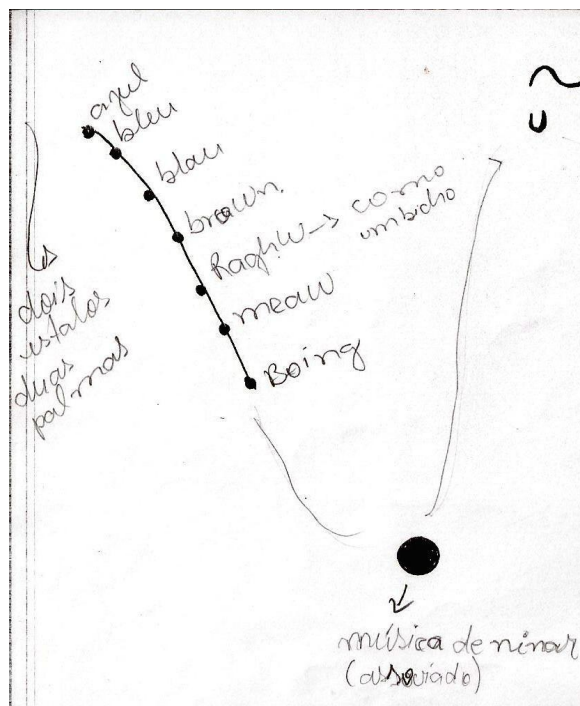 azul
bleu
blau
brown.
Raghw → como
um bicho
meaw
Boing
dois
estalos
duas
palmas
música de ninar
(assoviado)